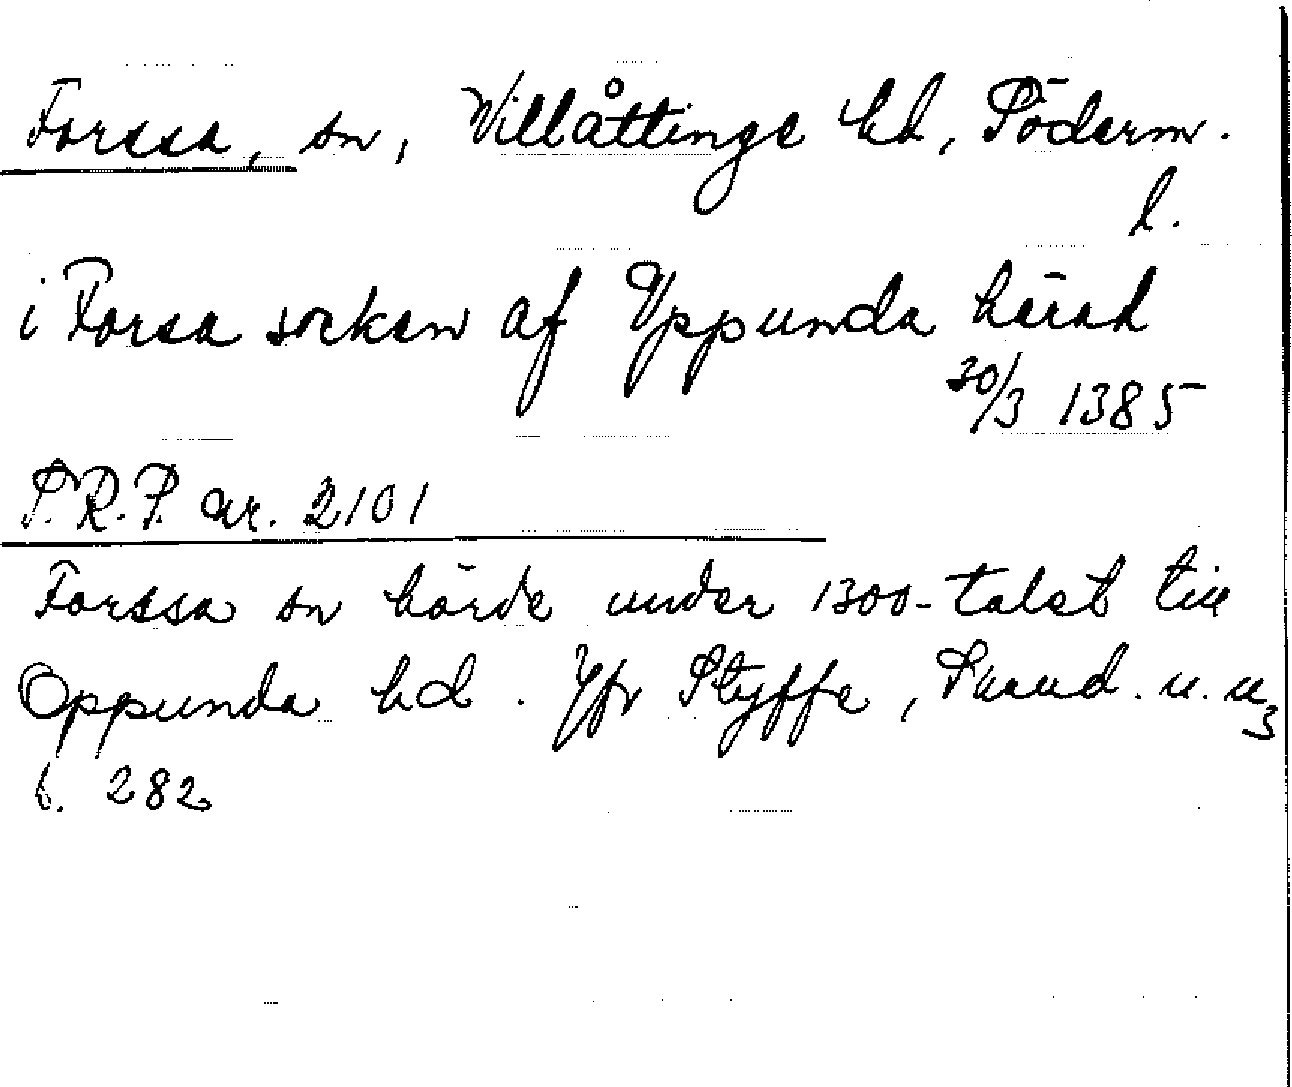 Forssa, sn, Villåttinge hd, Söderm.
l.
i Forsa socken af Uppunda härad
30/3 1385
S.R.P. nr. 2101
Forssa sn hörde under 1300-talet till
Oppunda hd. Jfr Styffe, Skand. u. u3
s. 282